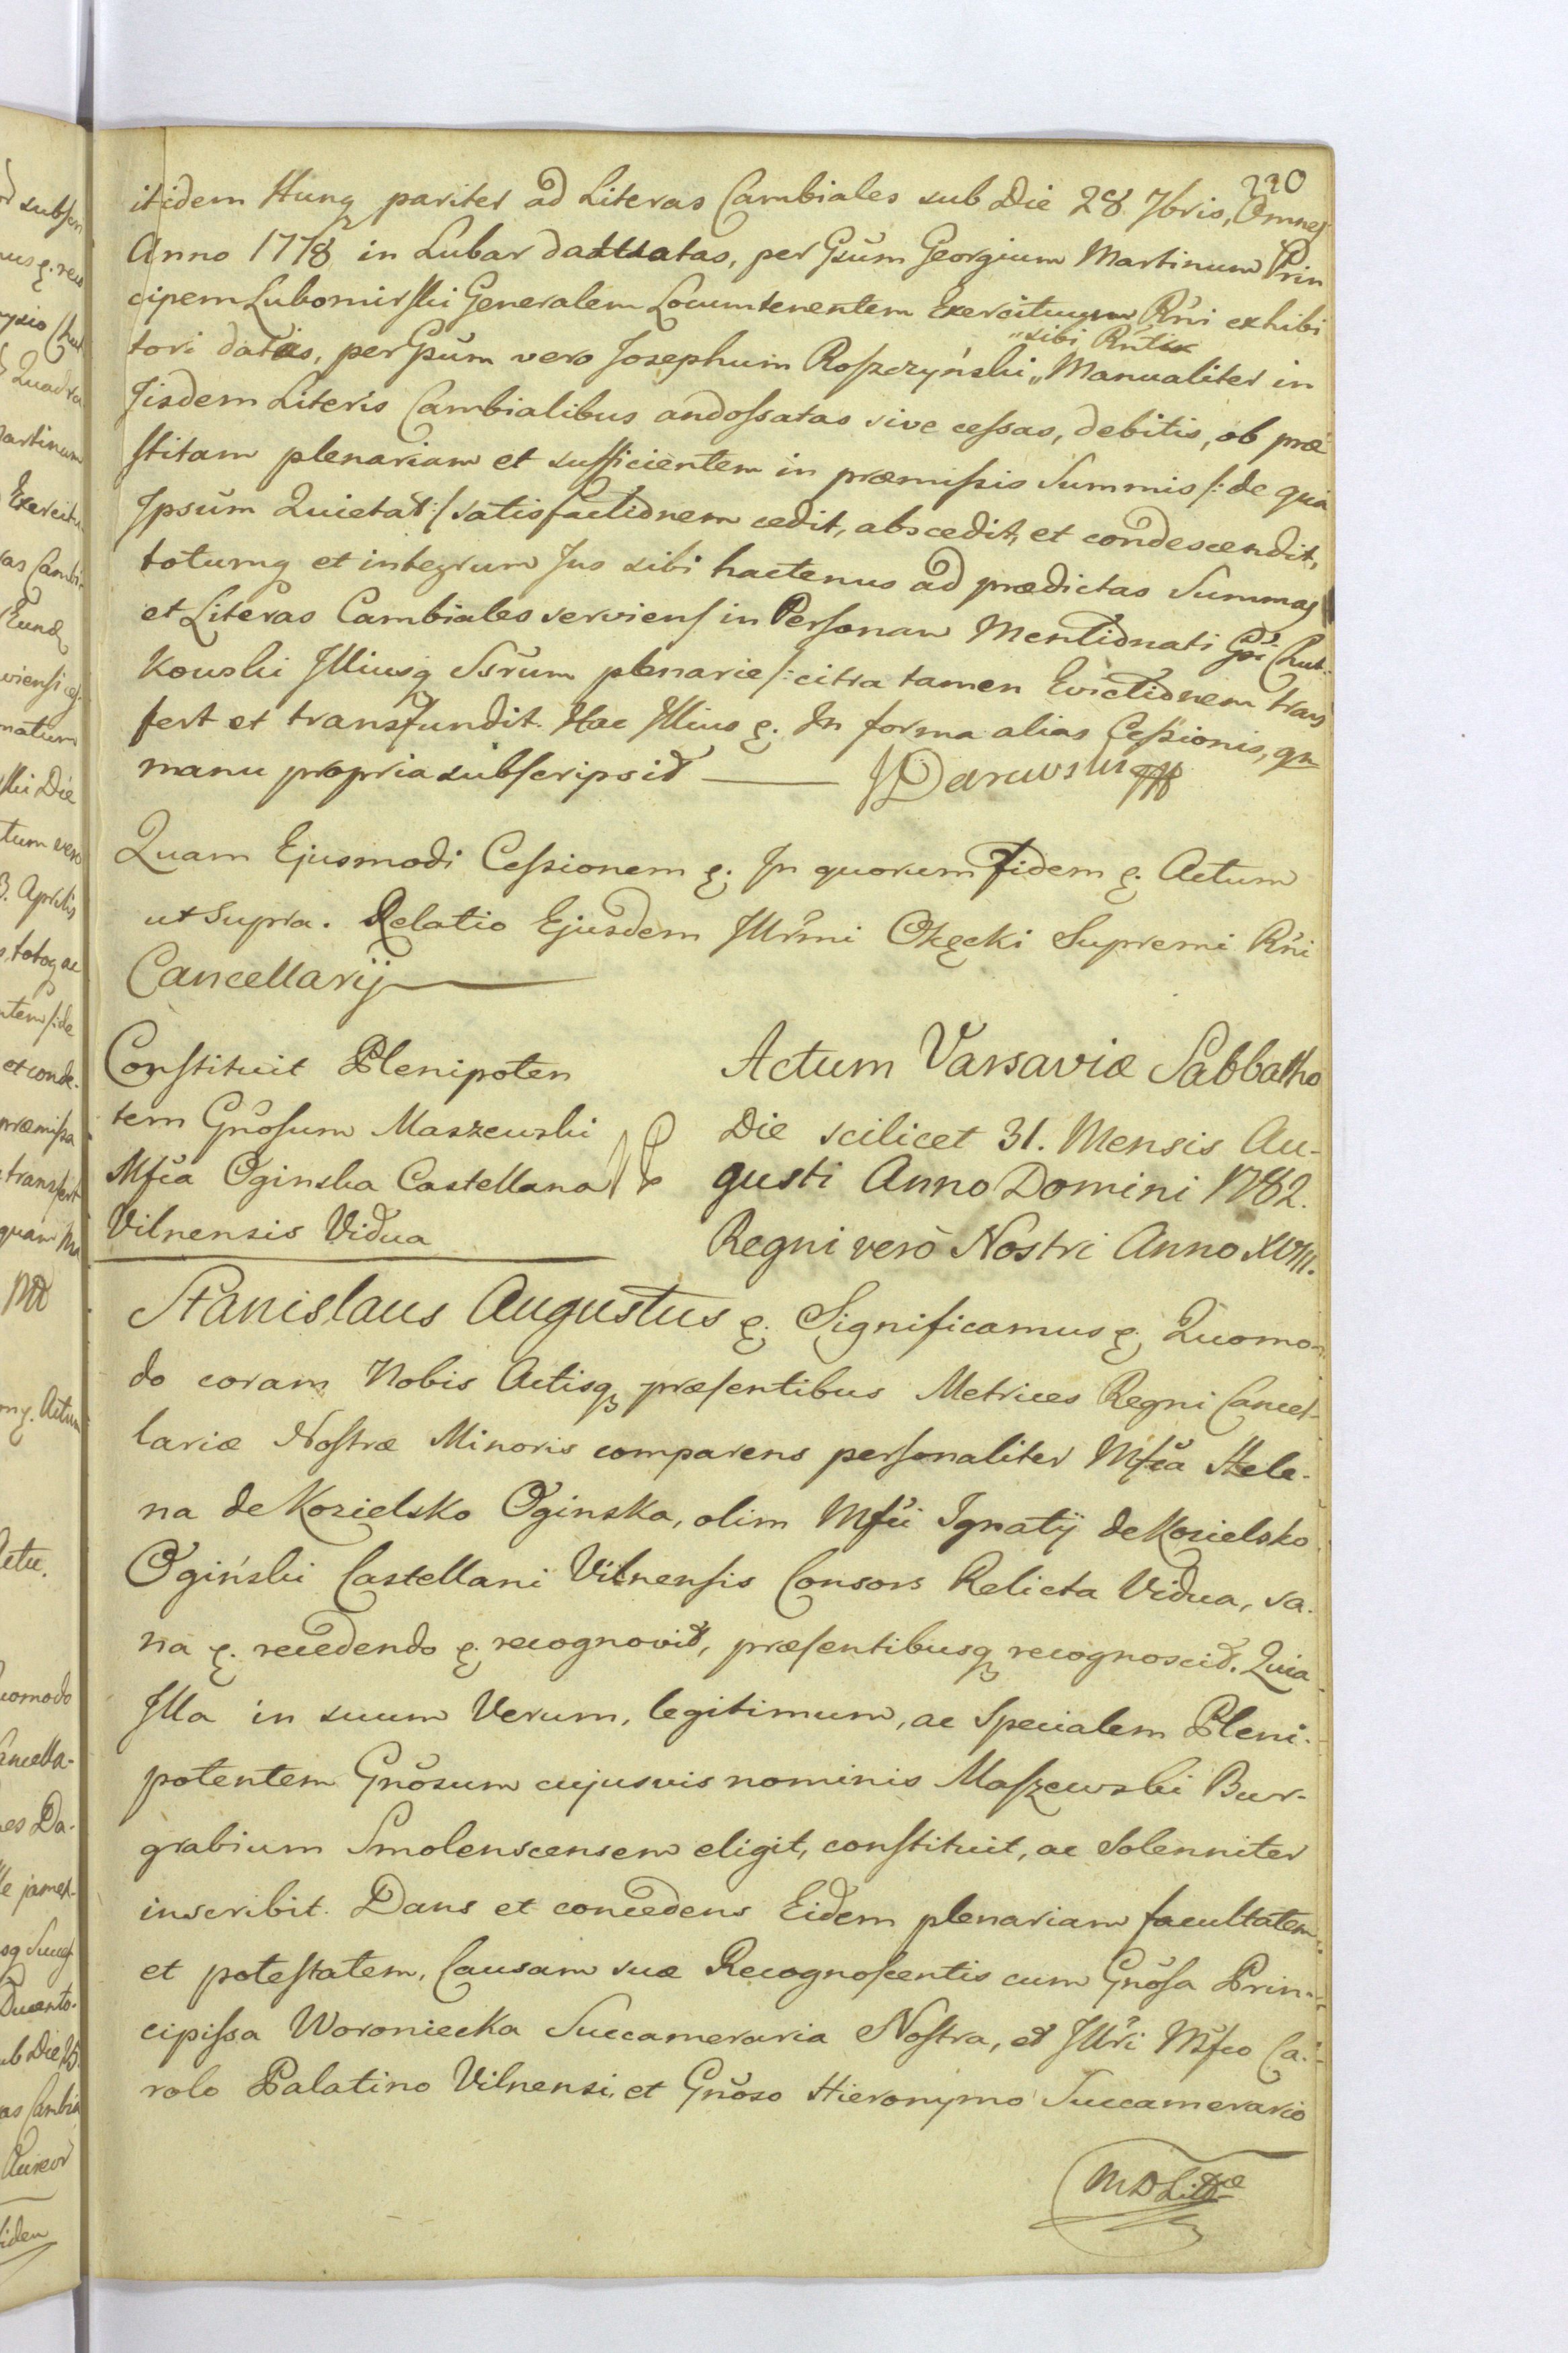 220
itidem Hung pariter ad Literas Cambiales sub Die 28 7bris, Omnes
Anno 1778 in Lubar datas, per Gsum Georgium Martinum Prin
cipem Lubomirski Generalem Locumtenentem Exercituum Rni exhibi
„sibi
tori datas, per Gsum vero Josephum Roszczyński „ Manualiter in
Jisdem Literis Cambialibus andossatas sive cessas, debitis, ob præ
stitam plenariam et sufficientem in præmissis Summis /: de qua
Ipsum Quietat :/ satisfactionem cedit, abscedit, et condescendit,
totumq et integrum Jus sibi hactenus ad prædictas Summas
et Literas Cambiales serviens in Personam Mentionati Gsi Chut-
kowski Illiusq Ssrum plenarie /: citra tamen Evictionem trans
fert et transfundit. Hac Illius &. In forma alias Cessionis, qn
manu propria subscripsit — Darewski
Quam Ejusmodi Cessionem &. In quorum Fidem &. Actum
ut Supra. Relatio Ejusdem Illrmi Okęcki Supremi Rni
Cancellarij
Constituit Plenipoten
tem Gnosum Maszewski
Mfca Oginska Castellana
Vilnensis Vidua
Actum Varsaviæ Sabbatho
Die scilicet 31. Mensis Au-
gusti Anno Domini 1782.
Regni verò Nostri Anno XVIII.
Stanislaus Augustus &. Significamus &. Quomo-
do coram Nobis Actisq præsentibus Metrices Regni Cancel-
lariæ Nostræ Minoris comparens personaliter Mfca Hele-
na de Kozielsko Oginska, olim Mfci Ignatij de Kozielsko
Ogiński Castellani Vilnensis Consors Relicta Vidua, sa-
na &. recedendo &. recognovit, præsentibusq recognoscit. Quia
Illa in suum Verum, legitimum, ac Specialem Pleni-
potentem Gnosum cujusvis nominis Maszewski Bur-
grabium Smolenscensem eligit, constituit, ac Solenniter
inscribit. Dans et concedens Eidem plenariam facultatem
et potestatem, Causam suæ Recognoscentis cum Gnosa Prin-
cipissa Woroniecka Succameraria Nostra, et Illri Mfco Ca-
rolo Palatino Vilnensi, et Gnoso Hieronymo Succamerario
MDLittæ